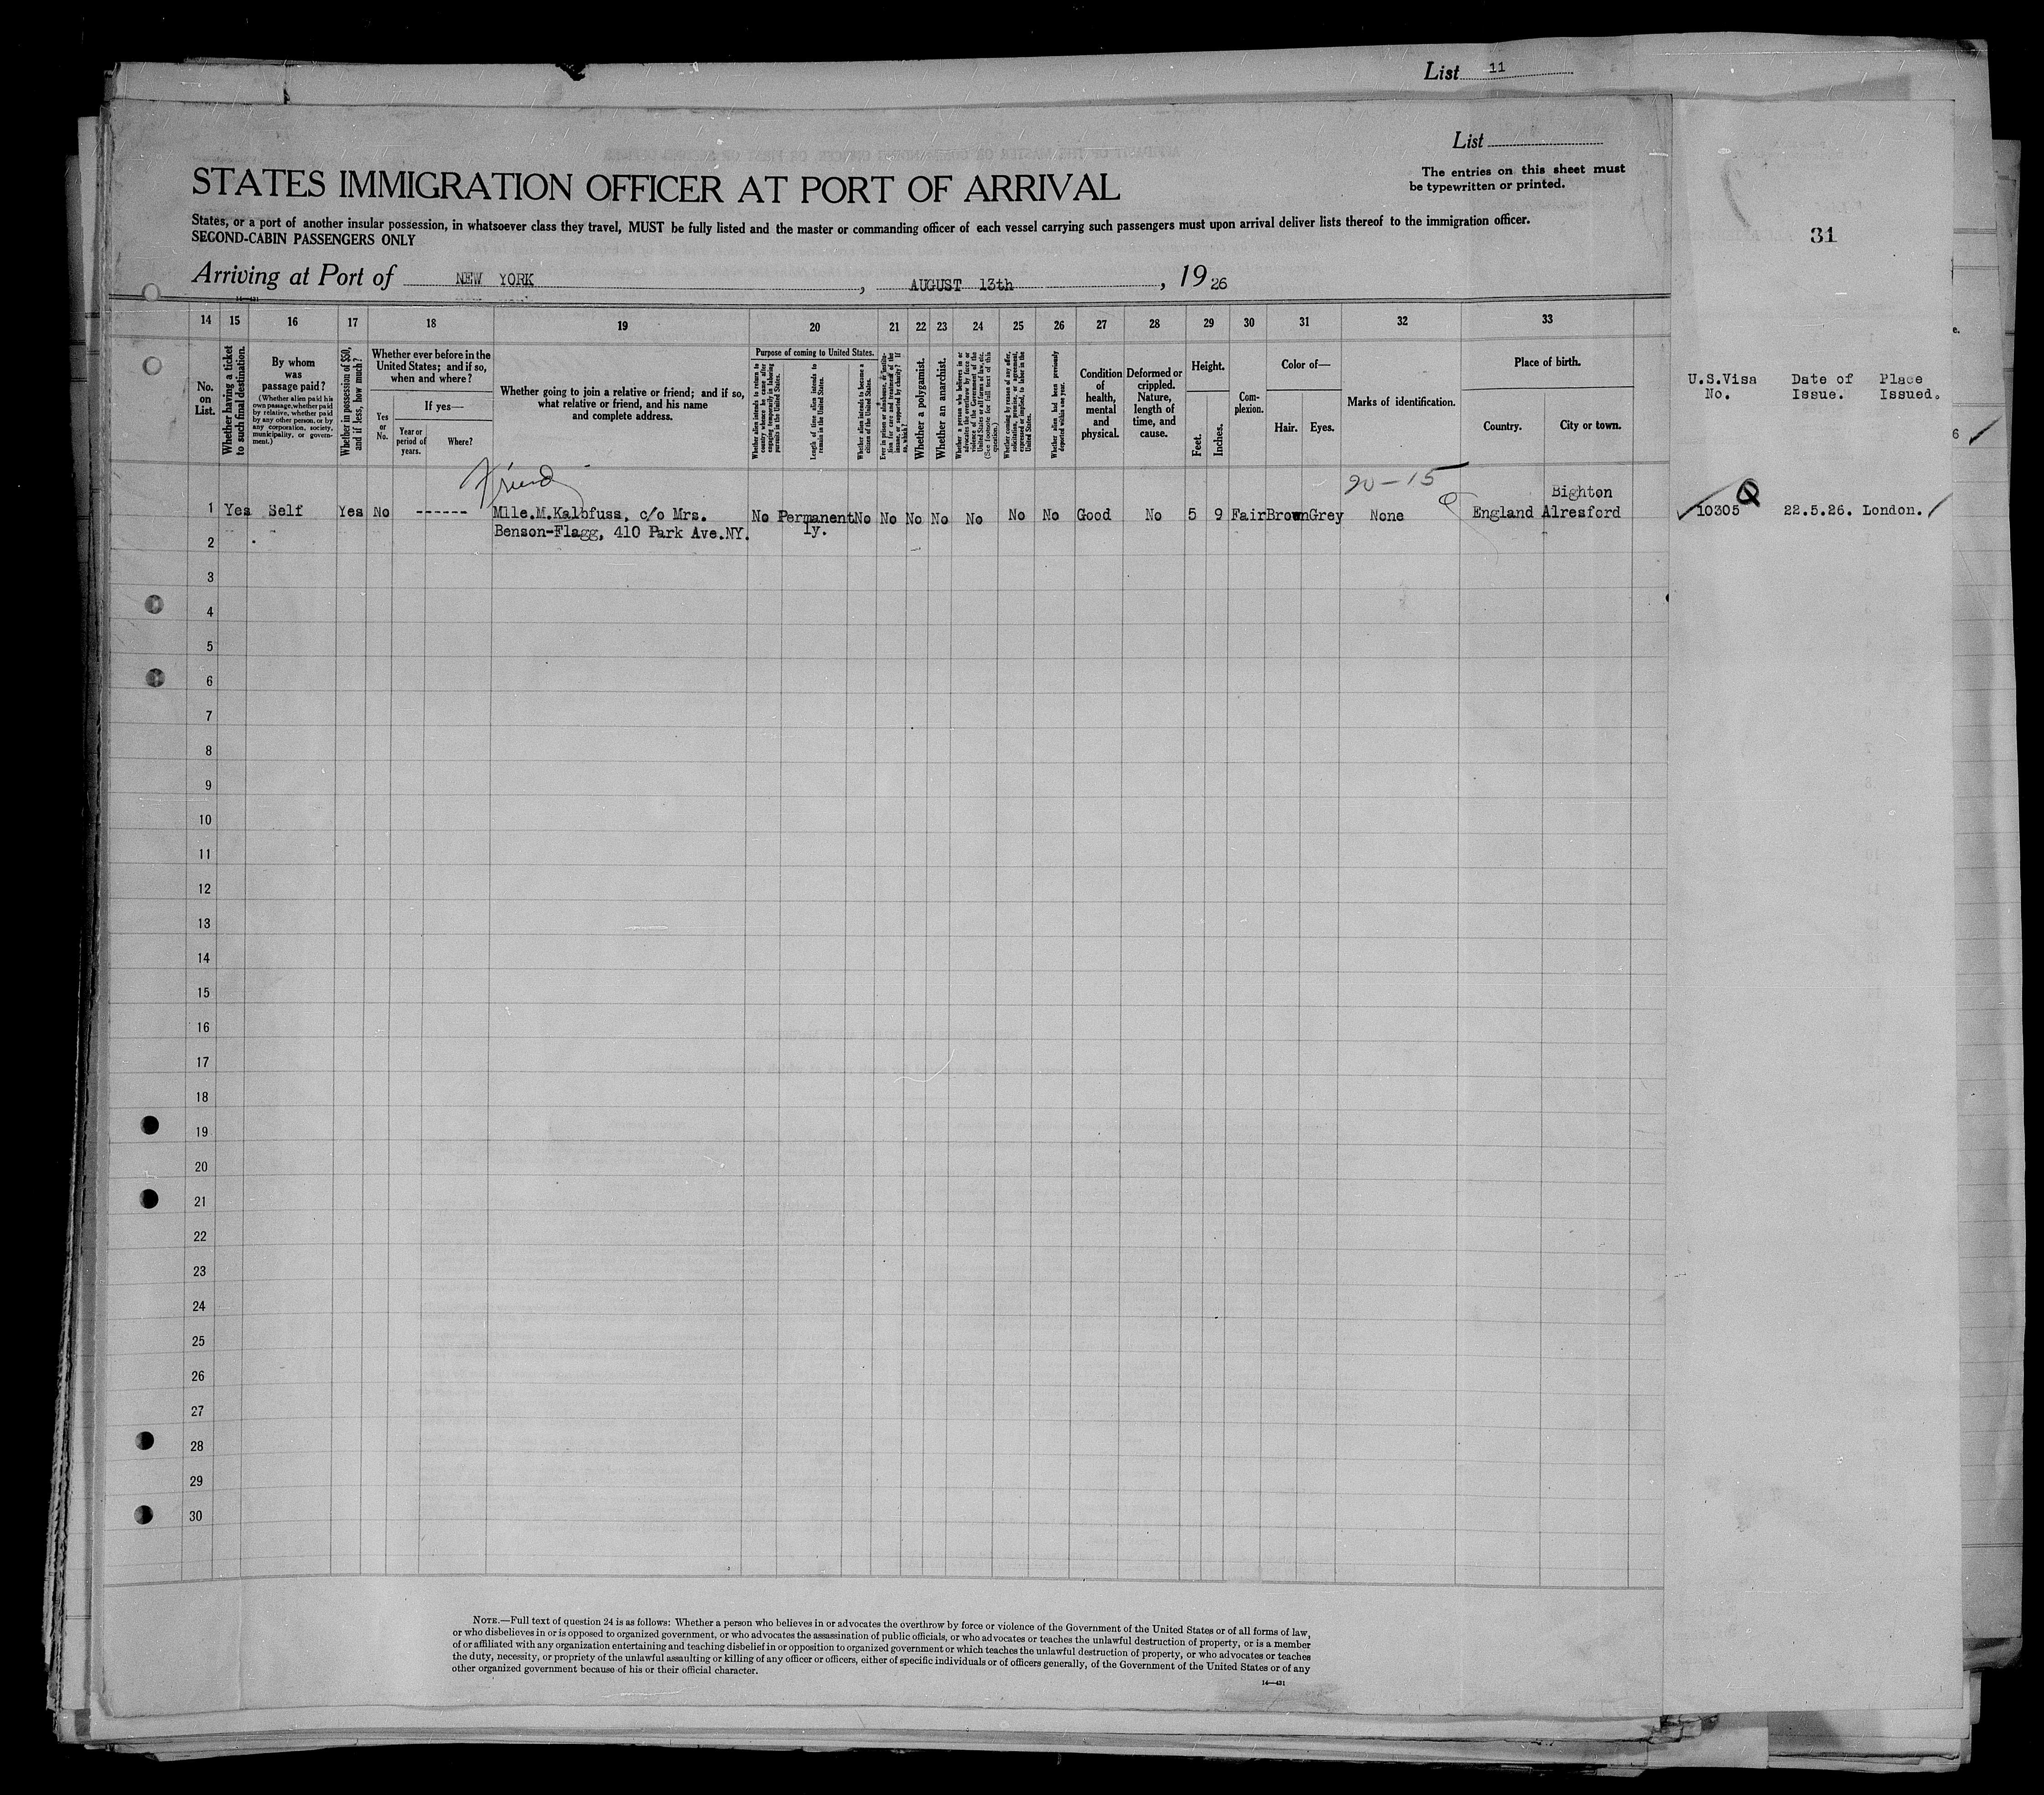 List 11
List
The entries on this sheet must
be typewritten or printed.
STATES IMMIGRATION OFFICER AT PORT OF ARRIVAL
States, or a port of another insular possession, in whatsoever class they travel, MUST be fully listed and the master or commanding officer of each vessel carrying such passengers must upon arrival deliver lists thereof to the immigration officer.
SECOND-CABIN PASSENGERS ONLY
31
Arriving at Port of NEW YORK, AUGUST 13th, 1926
14—431
14 15 16 17 18 19 20 21 22 23 24 25 26 27 28 29 30 31 32 33
No. on List.
Whether having a ticket to such final destination.
By whom was passage paid?
(Whether alien paid his own passage, whether paid by relative, whether paid by any other person, or by any corporation, society, municipality, or government.)
Whether in possession of $50, and if less, how much?
Whether ever before in the United States; and if so, when and where?
Yes or No.
If yes—
Year or period of years.
Where?
Whether going to join a relative or friend; and if so, what relative or friend, and his name and complete address.
Purpose of coming to United States.
Whether alien intends to return to country whence he came after engaging temporarily in laboring pursuits in the United States.
Length of time alien intends to remain in the United States.
Whether alien intends to become a citizen of the United States.
Ever in prison or almshouse, or institution for care and treatment of the insane, or supported by charity? If so, which?
Whether a polygamist.
Whether an anarchist.
Whether a person who believes in or advocates the overthrow by force or violence of the Government of the United States or all forms of law, etc. (See footnote for full text of this question.)
Whether coming by reason of any offer, solicitation, promise, or agreement, expressed or implied, to labor in the United States.
Whether alien had been previously deported within one year.
Condition of health, mental and physical.
Deformed or crippled. Nature, length of time, and cause.
Height.
Feet.
Inches.
Complexion.
Color of—
Hair.
Eyes.
Marks of identification.
Place of birth.
Country.
City or town.
U.S.Visa No.
Date of Issue.
Place Issued.
6
e.
Friend
20-15
Bighton
1 Yes Self Yes No ------ Mlle.M.Kalbfuss, c/o Mrs. No Permanent No No No No No No No Good No 5 9 Fair Brown Grey None England Alresford 10305 22.5.26. London.
2 Benson-Flagg, 410 Park Ave.NY. ly.
3
4
5
6
7
8
9
10
11
12
13
14
15
16
17
18
19
20
21
22
23
24
25
26
27
28
29
30
NOTE.—Full text of question 24 is as follows: Whether a person who believes in or advocates the overthrow by force or violence of the Government of the United States or of all forms of law,
or who disbelieves in or is opposed to organized government, or who advocates the assassination of public officials, or who advocates or teaches the unlawful destruction of property, or is a member
of or affiliated with any organization entertaining and teaching disbelief in or opposition to organized government or which teaches the unlawful destruction of property, or who advocates or teaches
the duty, necessity, or propriety of the unlawful assaulting or killing of any officer or officers, either of specific individuals or of officers generally, of the Government of the United States or of any
other organized government because of his or their official character.
14—431